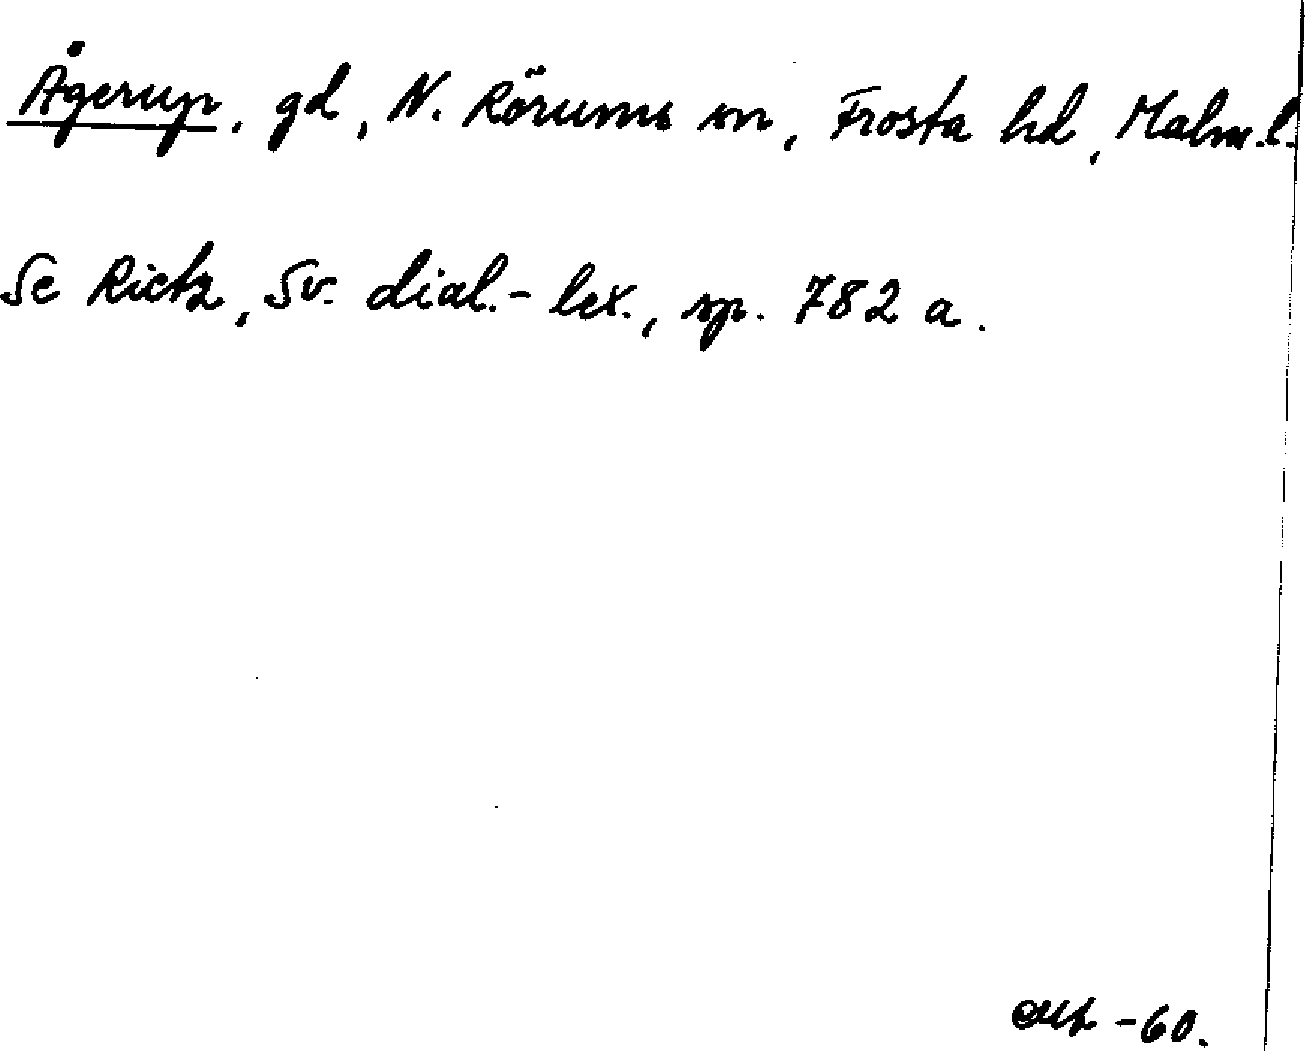 Ågerup, gd, N. Rörums sn, Frosta hd, Malm.l.
Se Rietz, Sv. dial.-lex., sp. 782 a.
-60.